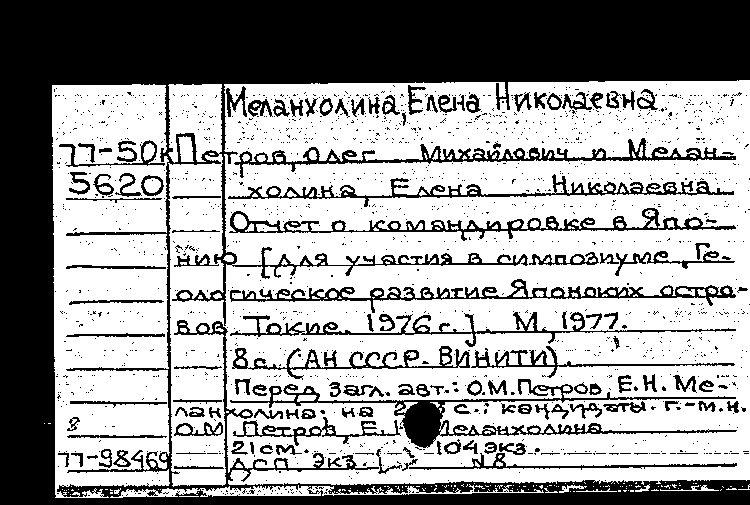 Меланхолина, Елена Николаевна.
77-50к Петров, Олег Михайлович и Мелан-
5620 холина, Елена Николаевна.
Отчет о командировке в Япо-
нию [для участия в симпозиуме „Ге-
ологическое развитие Японских остро-
вов. Токио. 1976 г.]. М., 1977.
8 с. (АН СССР. ВИНИТИ).
Перед загл. авт.: О.М. Петров, Е.Н. Ме-
ланхолина; на с.: кандидаты г.-м.н.
8 О.М. Петров, Е. Меланхолина
21 см. 104 экз.
77-98469 ДСП. экз. [ ] №8.